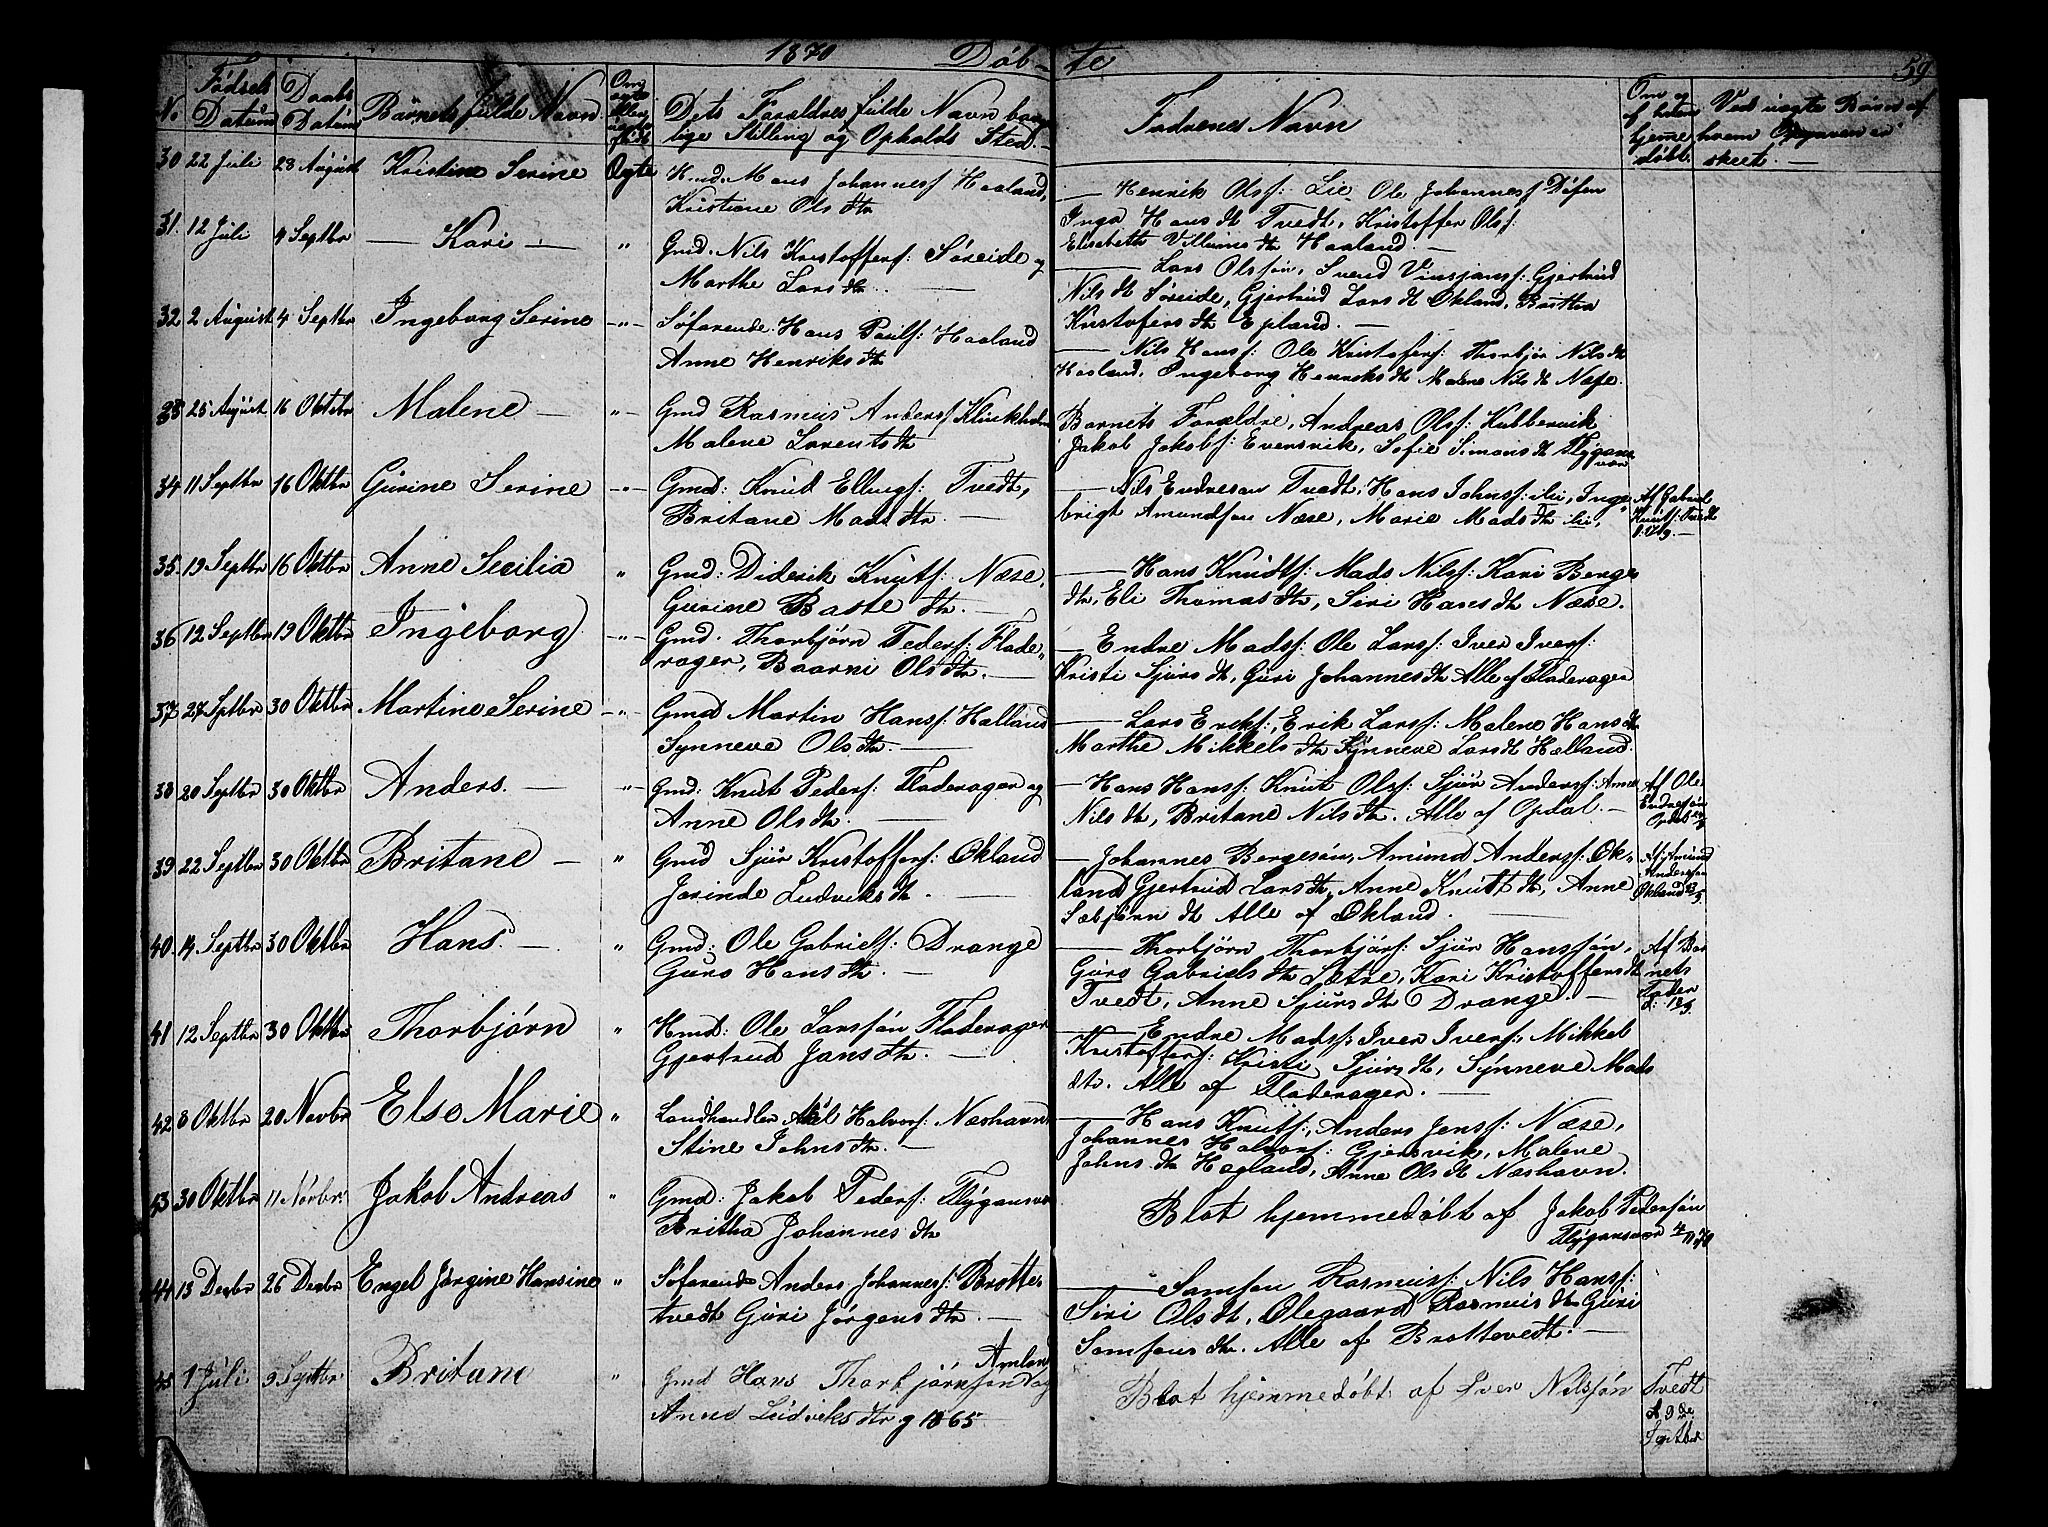 1870 Döb- te 59
No Födsels Datum Daabs Datum Barnets fulde Navn Om ægte eller uægte Födt Dets Forældres fulde Navn borgerlige Stilling og Opholds Sted. Faddernes Navn Om og af hvem hjemme döbt. Ved uægte Börn af hvem Opgaven er skeet. —
30 22 Juli 28 August Kristine Serine Ægte Hans Johannesf Haaland,
Kristiane Ols dtr
— Henrik Olsf: Lie Ole Johannesf
Inga Hans dt Tvedt, Kristoffer Olsf:
Elisabeth Villums dtr Haaland —
31. 12 Juli 4 Septbr — Kari — " Gmd. Nils Kristoffersf: Söreide og
Marthe Lars dtr. —
— Lars Olssön, Svend Gjertrud
Nils dt Söreide, Gjertrud Lars dt Økland, Brittha
Kristofers dtr Epland. —
32 2 August 4 Septbr Ingeborg Serine -"- Söfarende. Hans Poulsf: Haaland
Anne Henriks dtr
— Nils Hansf: Ole Kristofersf: Thorbjör Nils dt
Haaland. Ingeborg Henriks dt Malene Nils dt Næse.
33 25 August 16 Oktobr Malene — -"- Gmd Rasmus Andersf
Malene Lorents dtr
Barnets Forældre, Andreas Olsf: Kubbervik
Jakob Jakobf: Evensvik, Sofie Simons dt Flygansvær
34 11 Septbr 16 Oktbr Gurine Serine -"- Gmd: Knud Ellingf: Tvedt,
Britane Mads dtr. —
— Nils Endresøn Tvedt, Hans Johnsf: Inge-
brigt Amundsøn Næse, Marie Mads dtr
Af Gabriel
Knutf: Tvedt
35. 19 Septbr 16 Oktbr Anne Secilia " Gmd: Diderik Knutf: Næse,
Gurine Baste dtr. —
— Hans Knudtf: Mads Nilsf: Kari Berge
dtr, Eli Thomas dtr, Siri Hans dtr Næse.
36 12 Septbr 19 Oktbr Ingeborg -"- Gmd. Thorbjørn Pedersf: Flade-
rager, Baarni Ols dtr. —
— Endre Madsf: Ole Larsf: Iver Iversf:
Kristi Sjurs dt, Guri Johannes dt Alle af Fladerager
37 27 Sptbr 30 Oktbr Martine Serine -"- Gmd Martin Hansf: Halland
Synneve Ols dtr. —
— Lars Eriksf:, Erik Larsf: Malene Hans dt
Marthe Mikkels dtr Synneve Lars dt Halland.
38 20 Septbr 30 Oktbr Anders. — -"- Gmd: Knut Pedersf: Fladerager og
Anne Ols dtr. —
— Hans Hansf: Knut Olsf: Sjur Andersf: Anne
Nils dtr, Britane Nils dtr. Alle af Opdal. —
Af Ole
Endresøn
Opdal
39 22 Septbr 30 Oktbr Britane — " Gmd Sjur Kristoffersf: Økland
Jorinde Ludviks dtr. —
— Johannes Bergesön, Amund Andersf: Øk-
land Gjertrud Lars dtr, Anne Knutt dtr, Anne
Sæbjörn dt Alle af Økland. —
Af Amund
Andersøn
Økland
40. 14 Septbr 30 Oktbr Hans. — " Gmd: Ole Gabrielsf: Drange
Guro Hans dtr. —
— Thorbjörn Thorbjörsf: Sjur Hanssön,
Guro Gabriels dtr Sætre, Kari Kristoffers dt
Tvedt, Anne Sjurs dtr Drange. —
Af Bar
nets
Fader
41 12 Septbr 30 Oktbr Thorbjörn " Hmd: Ole Larssön Fladerager
Gjertrud Jans dtr. —
— Endre Madsf: Iver Iversf:, Mikkel
Kristoffersf: Kristi Sjurs dt, Synneve Mads
dtr. Alle af Fladerager. —
42 8 Oktbr 20 Novbr Else Marie " Landhandler Halvorsf: Næshavn
Stine Johns dtr. —
— Hans Knutf:, Anders Jensf: Næse,
Johannes Halvorsf: Gjersvik, Malene
Johns dt Hagland, Anne Ols dt Næshavn.
43 30 Oktbr 11 Novbr Jakob Andreas " Gmd: Jakob Pedersf: Flygansvær
Britha Johannes dtr
Blot hjemmedöbt af Jakob Pedersön
Flygansvær 4/11 70
44 13 Decbr 26 Decbr Engel Jörgine Hansine " Söfarende Anders Johannesf: Brotte-
tvedt Guri Jörgens dtr. —
— Samson Rasmusf: Nils Hansf:
Siri Ols dt, Olegaard Rasmus dtr Guri
Samsons dtr. Alle af Brottetvedt. —
45 1 Juli 9 Septbr Britane " Gmd Hans Thorbjørnsøn Amland og
Anne Ludviks dtr g 1865
Blot hjemmedöbt af Iver Nilsfön
Tvedt
d 9de
Septbr